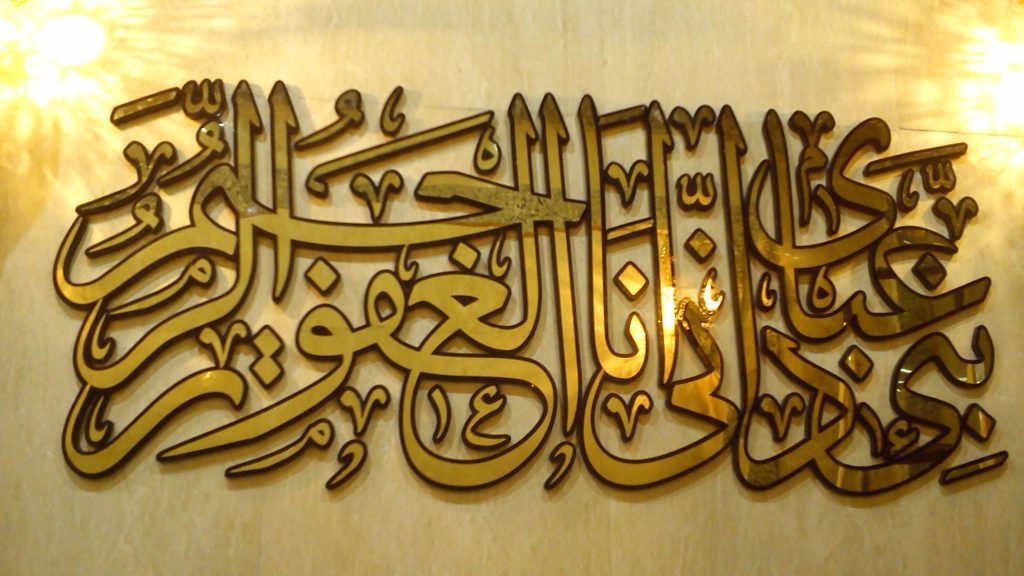 نَبِّئْ عِبَادِي أَنِّي أَنَا الْغَفُورُ الرَّحِيمُ